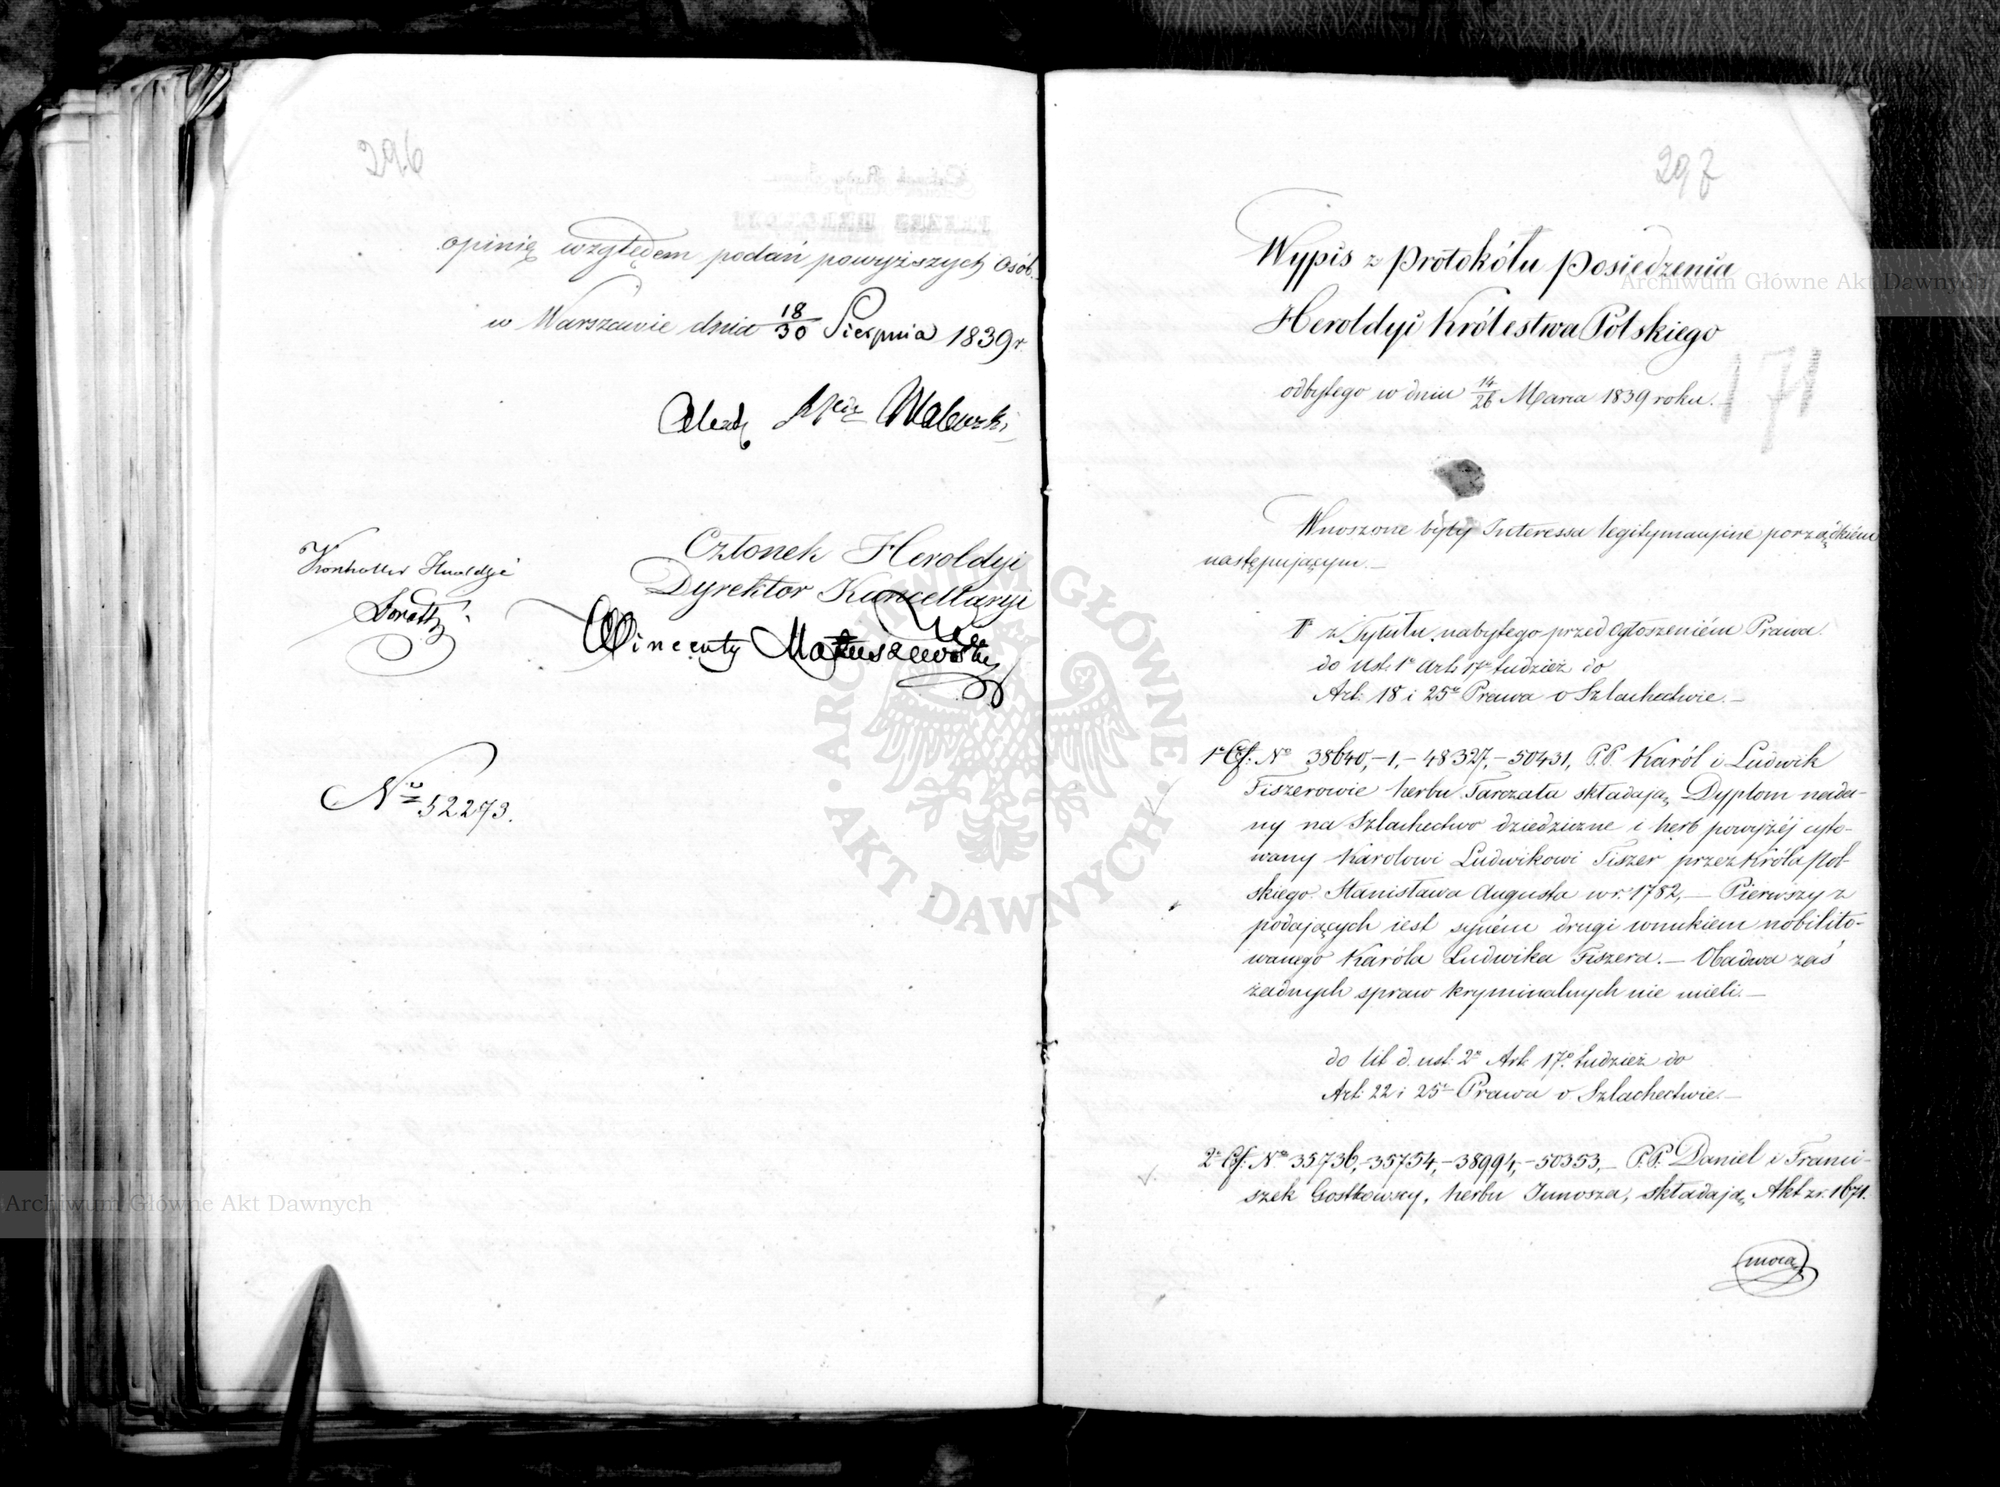 296
opinię względem podań powyższych Osób.
w Warszawie dnia 18/30 Sierpnia 1839 r.
Walewski
Członek Heroldyi
Dyrektor Kancellaryi
Kontroller Heroldyi
Wincenty Matuszewski
No 52273.
297
Wypis z Protokółu Posiedzenia
Heroldyi Królestwa Polskiego
171
odbytego w dniu 14/26 Marca 1839 roku.
Wnoszone były Interessa legitymacyjne porządkiem
następującym.—
z Tytułu nabytego przed Ogłoszeniem Prawa.
do Ust. 1o Art. 17o tudzież do
Art: 18 i 25o Prawa o Szlachectwie.—
1o No 38640,-1,-48327,-50431, P.P. Karól i Ludwik
Fiszerowie herbu Tarczału składają Dyplom nada-
ny na Szlachectwo dziedziczne i herb powyżéj cyto-
wany Karolowi Ludwikowi Fiszer przez Króla Pol-
skiego Stanisława Augusta w r. 1782,— Pierwszy z
podających iest synem drugi wnukiem nobilito-
wanego Karóla Ludwika Fiszera.— Obadwa zaś
żadnych spraw kryminalnych nie mieli.—
do lit d. ust: 2o Art. 17o tudzież do
Art: 22 i 25o Prawa o Szlachectwie.—
2o No 35736,-35754,-38994,-50353,— P.P. Daniel i Franci-
szek Gostkowscy, herbu Junosza, składają Akt z r. 1671.
mocą
Archiwum Główne Akt Dawnych
Archiwum Główne Akt Dawnych
ARCHIWUM GŁÓWNE · AKT DAWNYCH ·